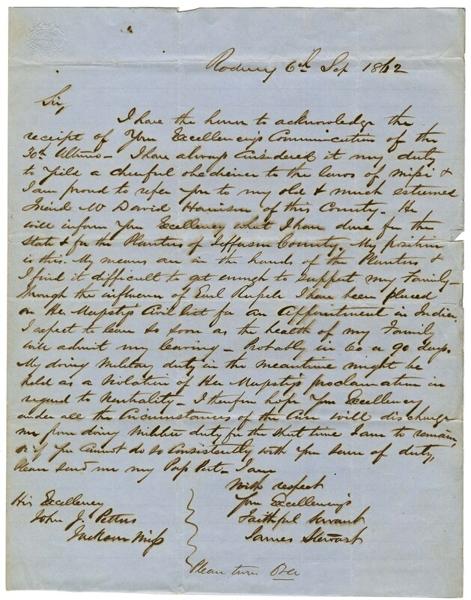 Rodney 6th Sep 1862
Sir
I have the honor to acknowledge the
receipt of Your Excellency's Communication of the
30th Ultimo - I have always considered it my duty
to yield a cheerful obedience to the laws of Missi &
I am proud to refer you to my old & much esteemed
friend Mr David Harrison of this County. He
will inform Your Excellency what I have done for the
State & for the Planters of Jefferson County, My position
is this My means are in the hands of the Planters &
I find it difficult to get enough to support my Family -
Through the influence of Earl Russell I have been placed
on Her Majesty's Civil list for an Appointment in India
I expect to leave so soon as the health of my Family
will admit my leaving - Probably in 60 or 90 days.
My doing Military duty in the meantime might be
held as a Violation of Her Majesty's proclamation in
regard to Neutrality - I therefore hope Your Excellency
under all the Circumstances of the Case will discharge
me from doing Militia duty for the short time I am to remain,
or if You Cannot do so Consistently with your sense of duty,
Please send me my Pass Port. I am
With respect
Your Excellency's
Faithful Servant
James Stewart
His Excellency
John J. Pettus
Jackson Miss
Please turn Over